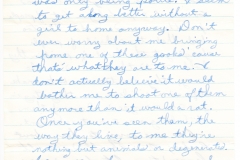 was only being polite. I seem
to get along better without a
girl to home anyway. Don't
ever worry about me bringing
home one of these gooks cause
that's what they are to me. I
don't actually believe it would
bother me to shoot one of them
any more than it would a rat.
Once you've seen them, the
way they live, to me they're
nothing but animals or degenerates